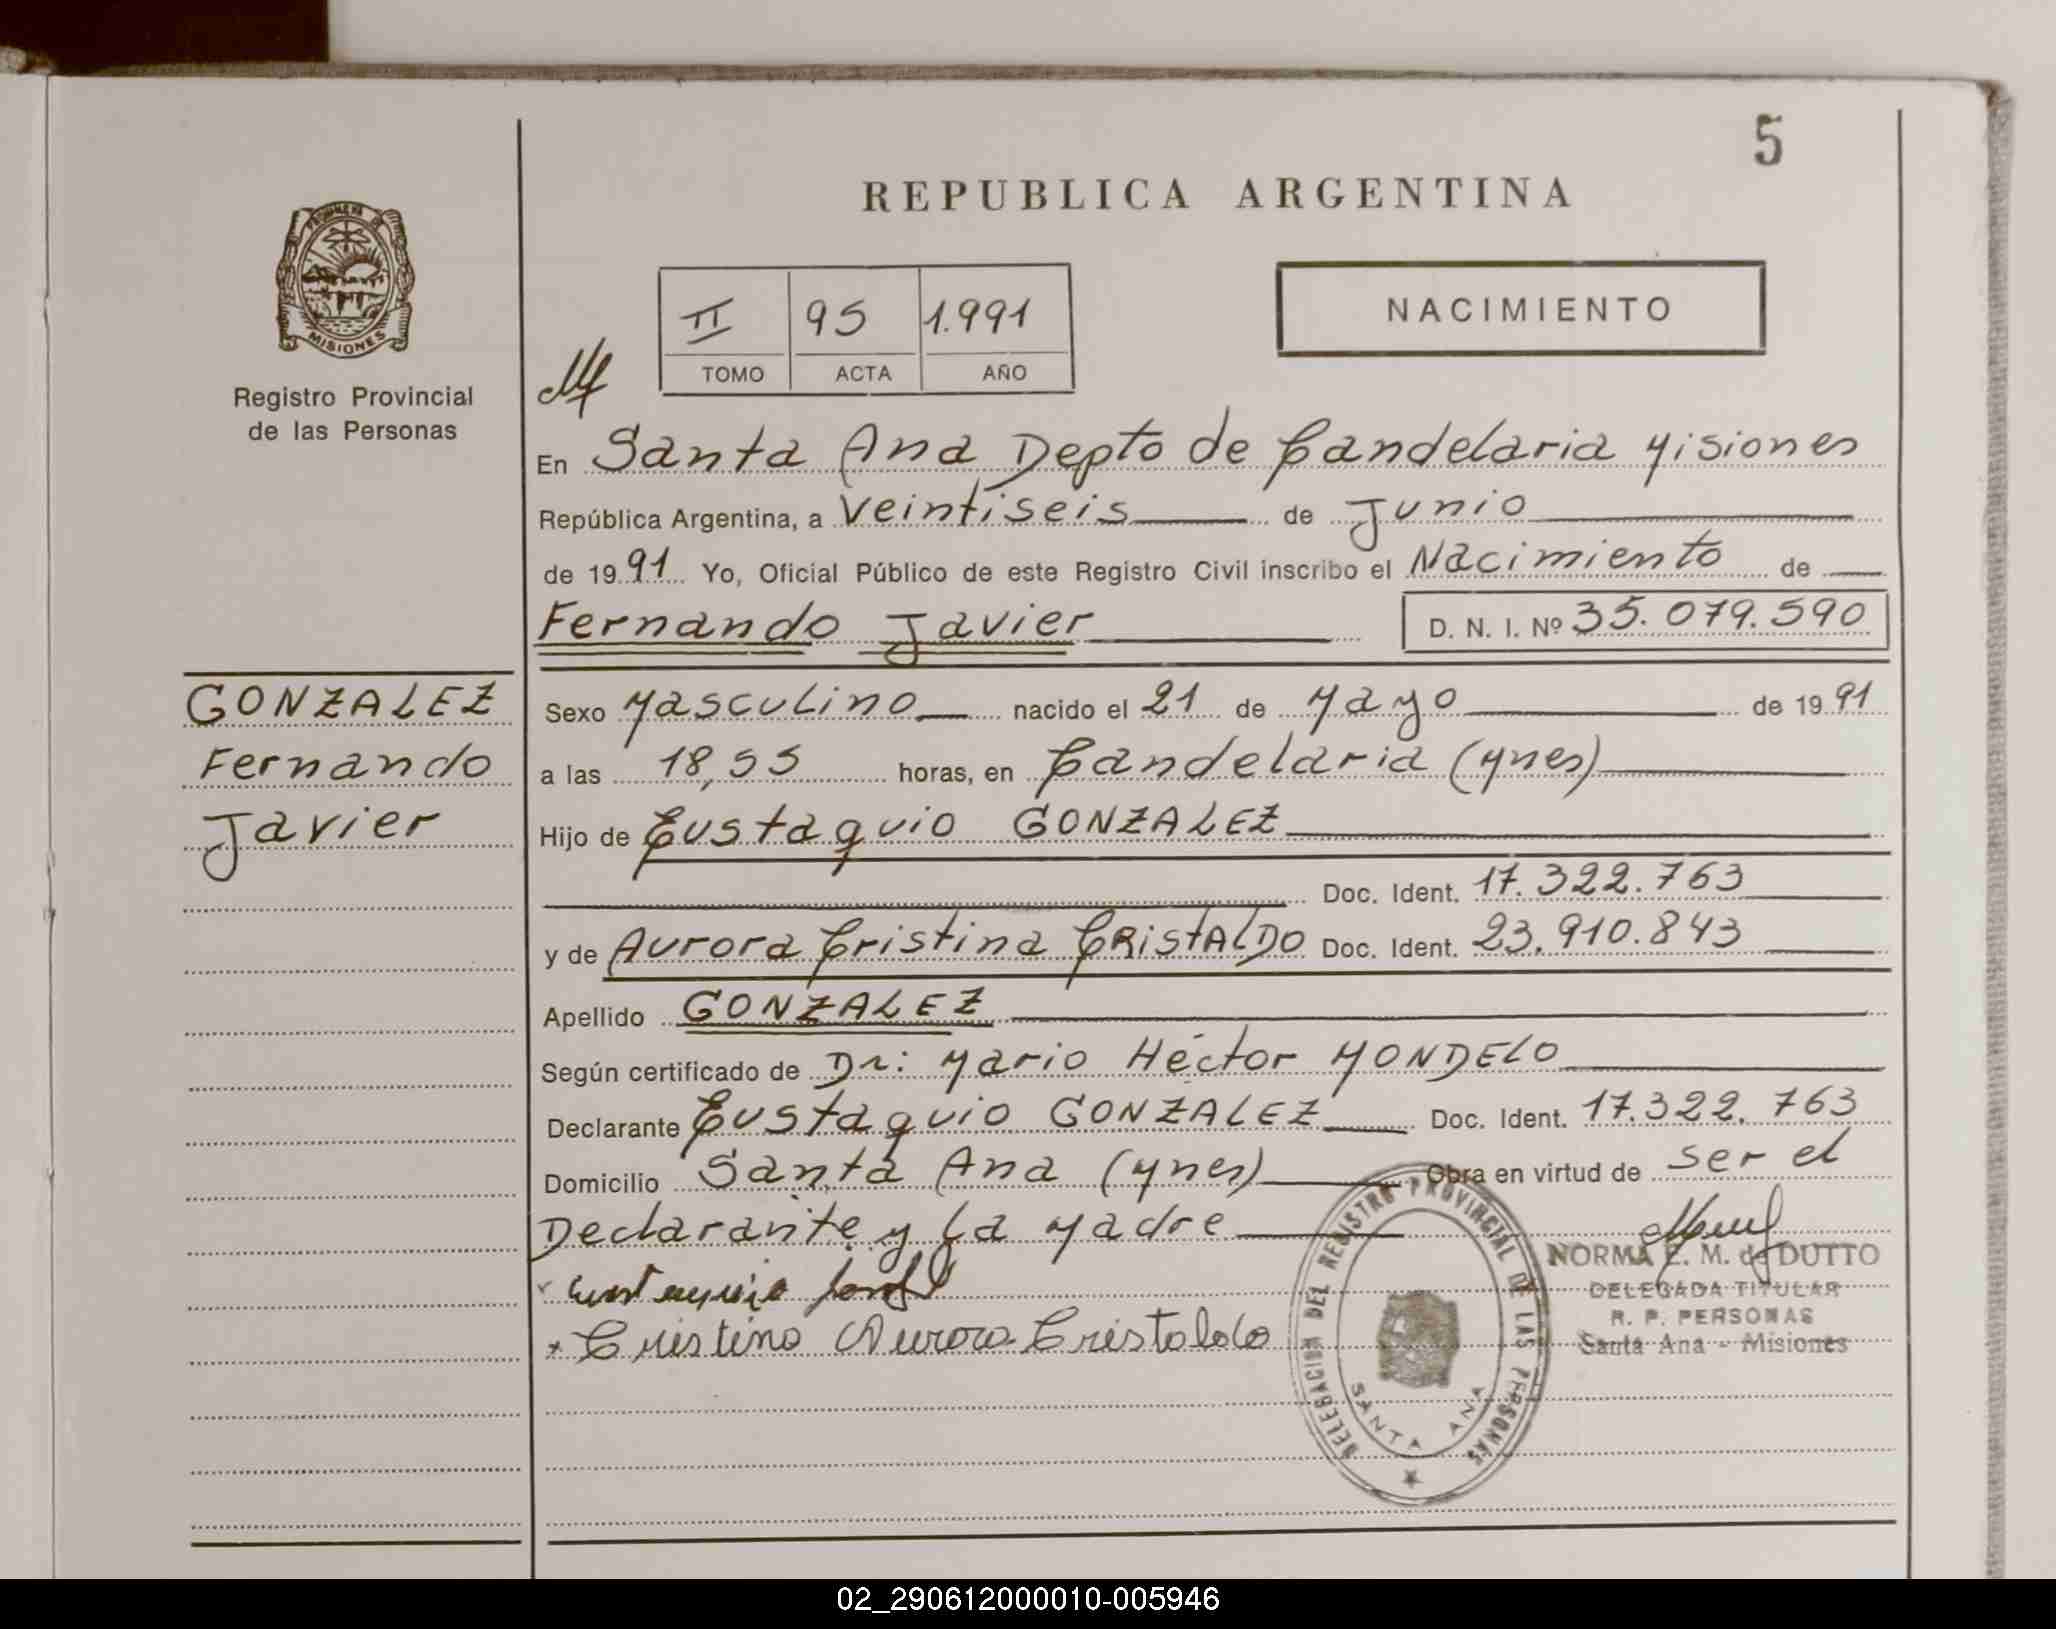 5
REPUBLICA ARGENTINA
PROVINCIA DE
MISIONES
Registro Provincial
de las Personas
II 95 1.991
TOMO ACTA AÑO
NACIMIENTO
En Santa Ana Depto de Candelaria Misiones
República Argentina, a Veintiseis de Junio
de 19 91 Yo, Oficial Público de este Registro Civil inscribo el Nacimiento de
Fernando Javier D. N. I. Nº 35.079.590
GONZALEZ
Fernando
Javier
Sexo Masculino nacido el 21 de Mayo de 19 91
a las 18,55 horas, en Candelaria (Mnes)
Hijo de Eustaquio GONZALEZ
Doc. Ident. 17.322.763
y de Aurora Cristina CRISTALDO Doc. Ident. 23.910.843
Apellido GONZALEZ
Según certificado de Dr: Mario Héctor MONDELO
Declarante Eustaquio GONZALEZ Doc. Ident. 17.322.763
Domicilio Santa Ana (Mnes) Obra en virtud de ser el
Declarante y La Madre
Cristina Aurora Cristaldo
NORMA E. M. de DUTTO
DELEGADA TITULAR
R. P. PERSONAS
Santa Ana - Misiones
DELEGACION DEL REGISTRO PROVINCIAL DE LAS PERSONAS
SANTA ANA
02_290612000010-005946